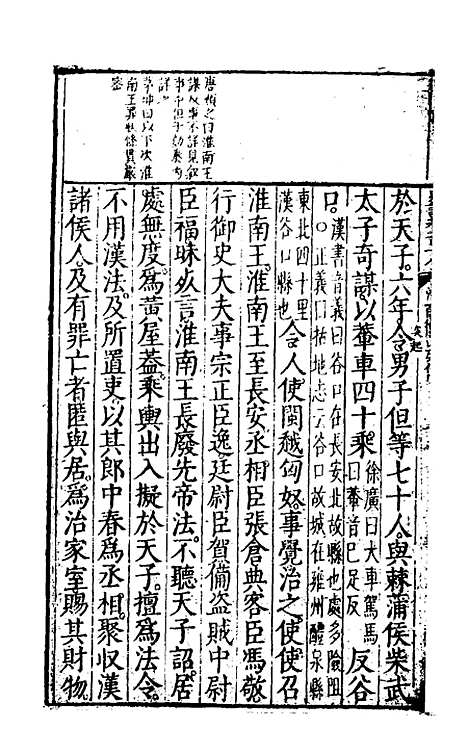 於天子。六年。令男子但等七十人。與棘蒲侯柴武
太子奇謀。以輂車四十乘徐廣曰大車駕馬曰輂音已足反反谷
口。漢書音義曰谷口在長安北故縣也處多險阻〇正義曰括地志云谷口故城在雍州醴泉縣
東北四十里漢谷口縣也令人使閩越匈奴。事覺治之。使使召
淮南王。淮南王至長安丞相臣張倉典客臣馮敬
行御史大夫事宗正臣逸廷尉臣賀備盗賊中尉
臣福昧死言。淮南王長廢先帝法。不聽天子詔。居
處無度。爲黄屋蓋乘輿出入擬於天子。擅爲法令。
不用漢法。及所置吏。以其郎中春爲丞相。聚収漢
諸侯人。及有罪亡者匿與居。爲治家室賜其財物
唐順之曰淮南王
謀反事不詳見叙
事中但于劾奏内
詳之